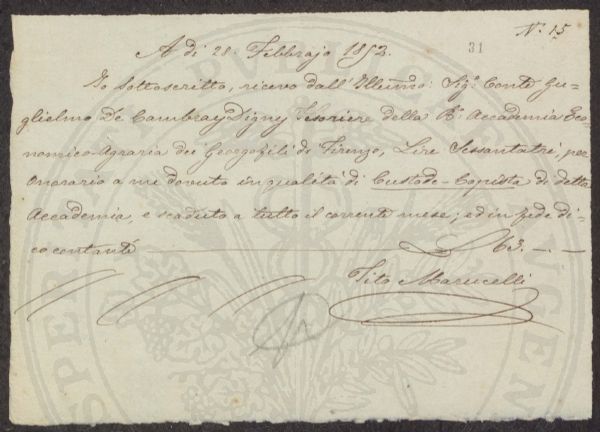 N.º 15
31
A di 28 Febbrajo 1853.
Io Sottoscritto, ricevo dall'Illumo: Sigr. Conte Gu-
glielmo De Cambray Digny Tesoriere della Rl. Accademia Eco-
nomico-Agraria dei Georgofili di Firenze, Lire Sessantatrè, per
Onorario a me dovuto in qualità di Custode-Copista di detta
Accademia, e scaduto a tutto il corrente mese; ed in fede di-
co contanti £ 63. — —
Tito Marucelli